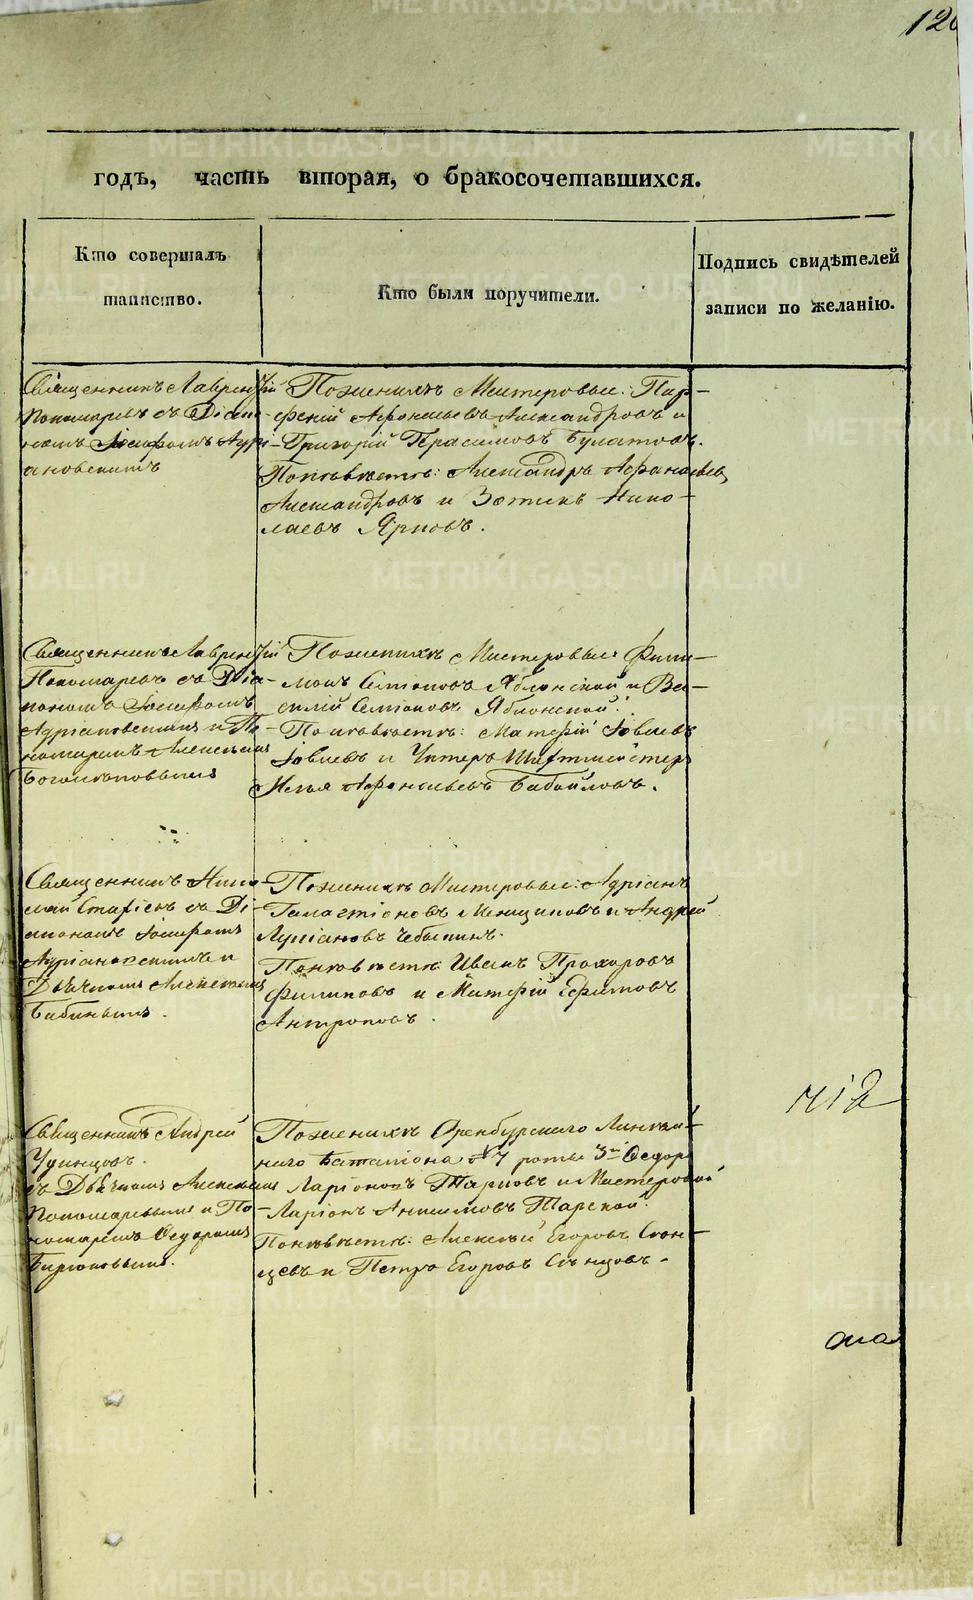 годъ, часть вторая, о бракосочетавшихся.
Кто совершалъ
таинство.
Кто были поручители.
Подпись свидѣтелей
записи по желанію.
Священникъ Лаврентій
Пономаревъ съ Діако-
номъ Іосифомъ Адрі-
ановскимъ
По женихѣ Мастеровые: Пар-
феній Афонасьевъ Александровъ и
Григорій Герасимовъ Булатовъ.
По невѣстѣ: Александръ Афанасьевъ
Александровъ и Зотикъ Нико-
лаевъ Ярковъ.
Священникъ Лаврентій
Пономаревъ съ Діа-
кономъ Іосифомъ
Адріановскимъ и По-
номаремъ Алексеемъ
Боголеповымъ
По женихѣ Мастеровые: Фили-
монъ Семіоновъ Яблонской и Ва-
силій Семіоновъ Яблонской.
По невѣстѣ: Матфій Іовлевъ
Іовлевъ и Унтеръ Шихтмейстеръ
Илья Афонасьевъ Бабайловъ.
Священникъ Нико-
лай Стафіевъ съ Ді-
акономъ Іосифомъ
Адріановскимъ и
Дьячкомъ Алексеемъ
Бабинымъ.
По женихѣ Мастеровые: Адріанъ
Галактіоновъ Менщиковъ и Андрей
Лукіановъ Чебыкинъ.
По невѣстѣ Иванъ Прохоровъ
Филиповъ и Матфій Ефимовъ
Антроповъ.
Священникъ Андрей
Удинцовъ.
съ Дьячкомъ Алексеемъ
Пономаревымъ и По-
номаремъ Ѳедоромъ
Бирюковымъ.
По женихѣ Оренбургскаго Линѣй-
наго Баталіона №7 роты 3й Ѳедоръ
Ларіоновъ Тарковъ и Мастеровой
Ларіонъ Анисимовъ Тарской.
По невѣстѣ: Алексѣй Егоровъ Скон-
цевъ и Петръ Егоровъ Сѣнцовъ.
METRIKI.GASO-URAL.RU